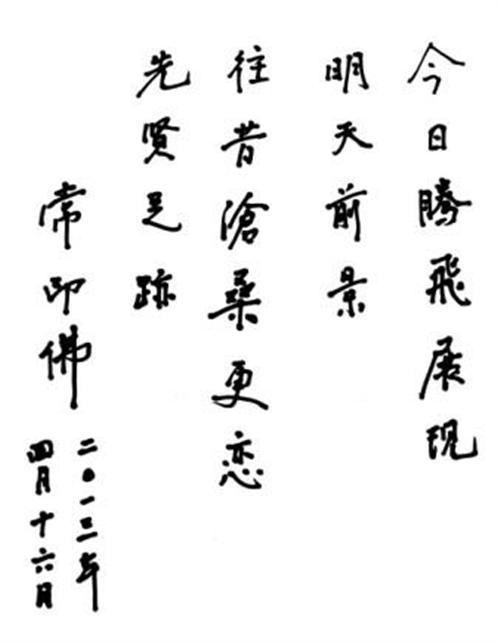 今日騰飛展现
明天前景
往昔滄桑更恋
先贤足跡
常印佛
二〇一三年
四月十六日